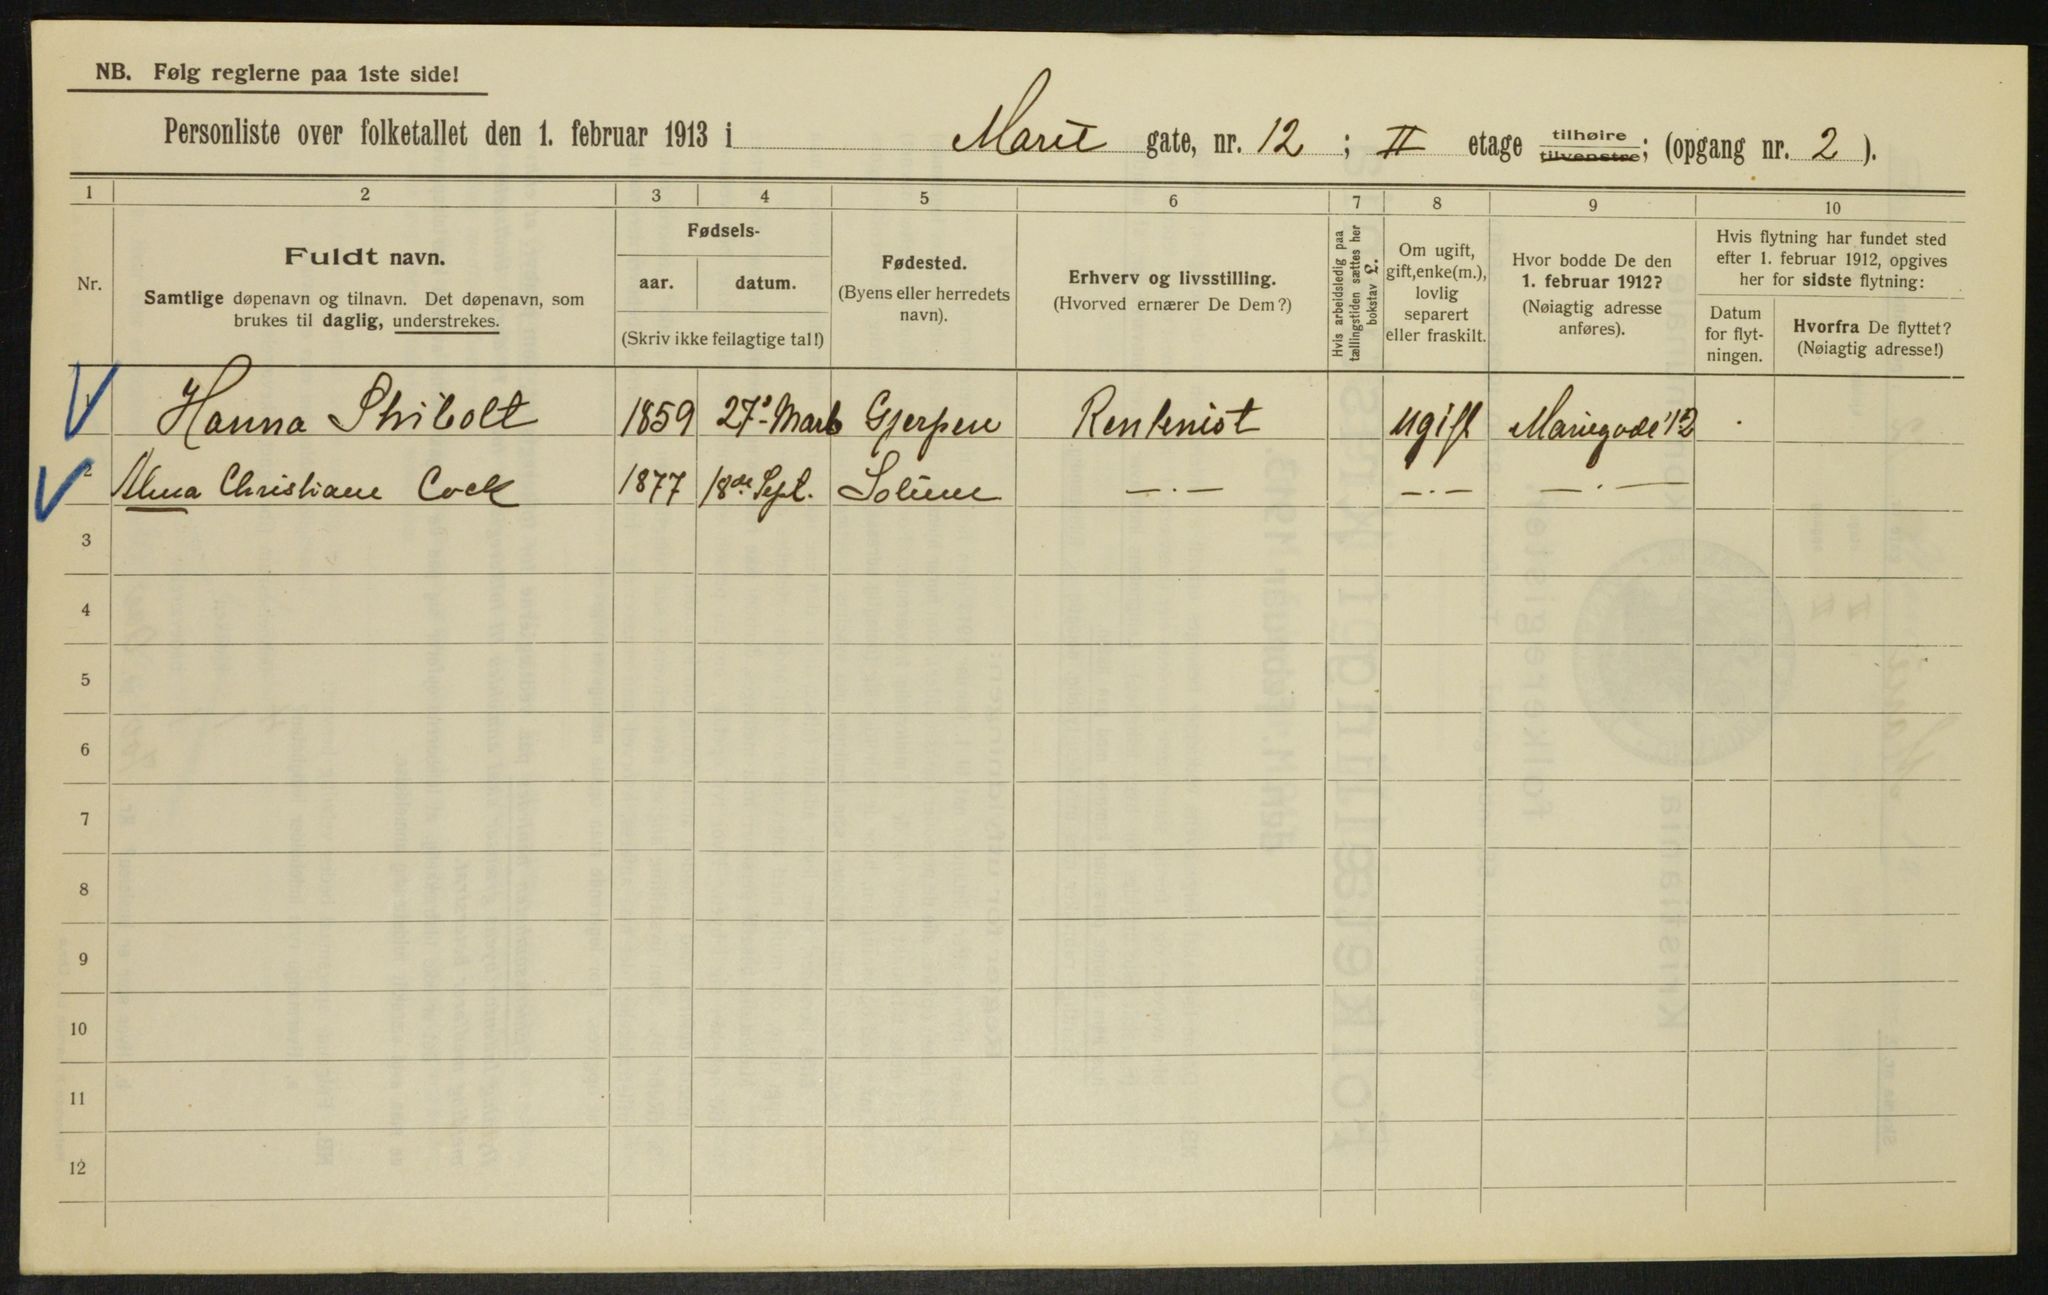 NB. Følg reglerne paa 1ste side!
Personliste over folketallet den 1. februar 1913 i Marie gate, nr. 12 ; II etage tilhøire tilvenstre; (opgang nr. 2 ).
1 2 3 4 5 6 7 8 9 10
Nr.
Fuldt navn.
Samtlige døpenavn og tilnavn. Det døpenavn, som
brukes til daglig, understrekes.
Fødsels-
aar. datum.
(Skriv ikke feilagtige tal!)
Fødested.
(Byens eller herredets
navn).
Erhverv og livsstilling.
(Hvorved ernærer De Dem?)
Hvis arbeidsledig paa
tællingstiden sættes her
bokstav L.
Om ugift,
gift, enke(m.),
lovlig
separert
eller fraskilt.
Hvor bodde De den
1. februar 1912?
(Nøiagtig adresse
anføres).
Hvis flytning har fundet sted
efter 1. februar 1912, opgives
her for sidste flytning:
Datum
for flyt-
ningen.
Hvorfra De flyttet?
(Nøiagtig adresse!)
1 Hanna 1859 27de Gjerpen Rentenist ugift Mariegade 12
2 Alma Christiane Cock 1877 18de Sept. Solum — . — — . — — . —
3
4
5
6
7
8
9
10
11
12